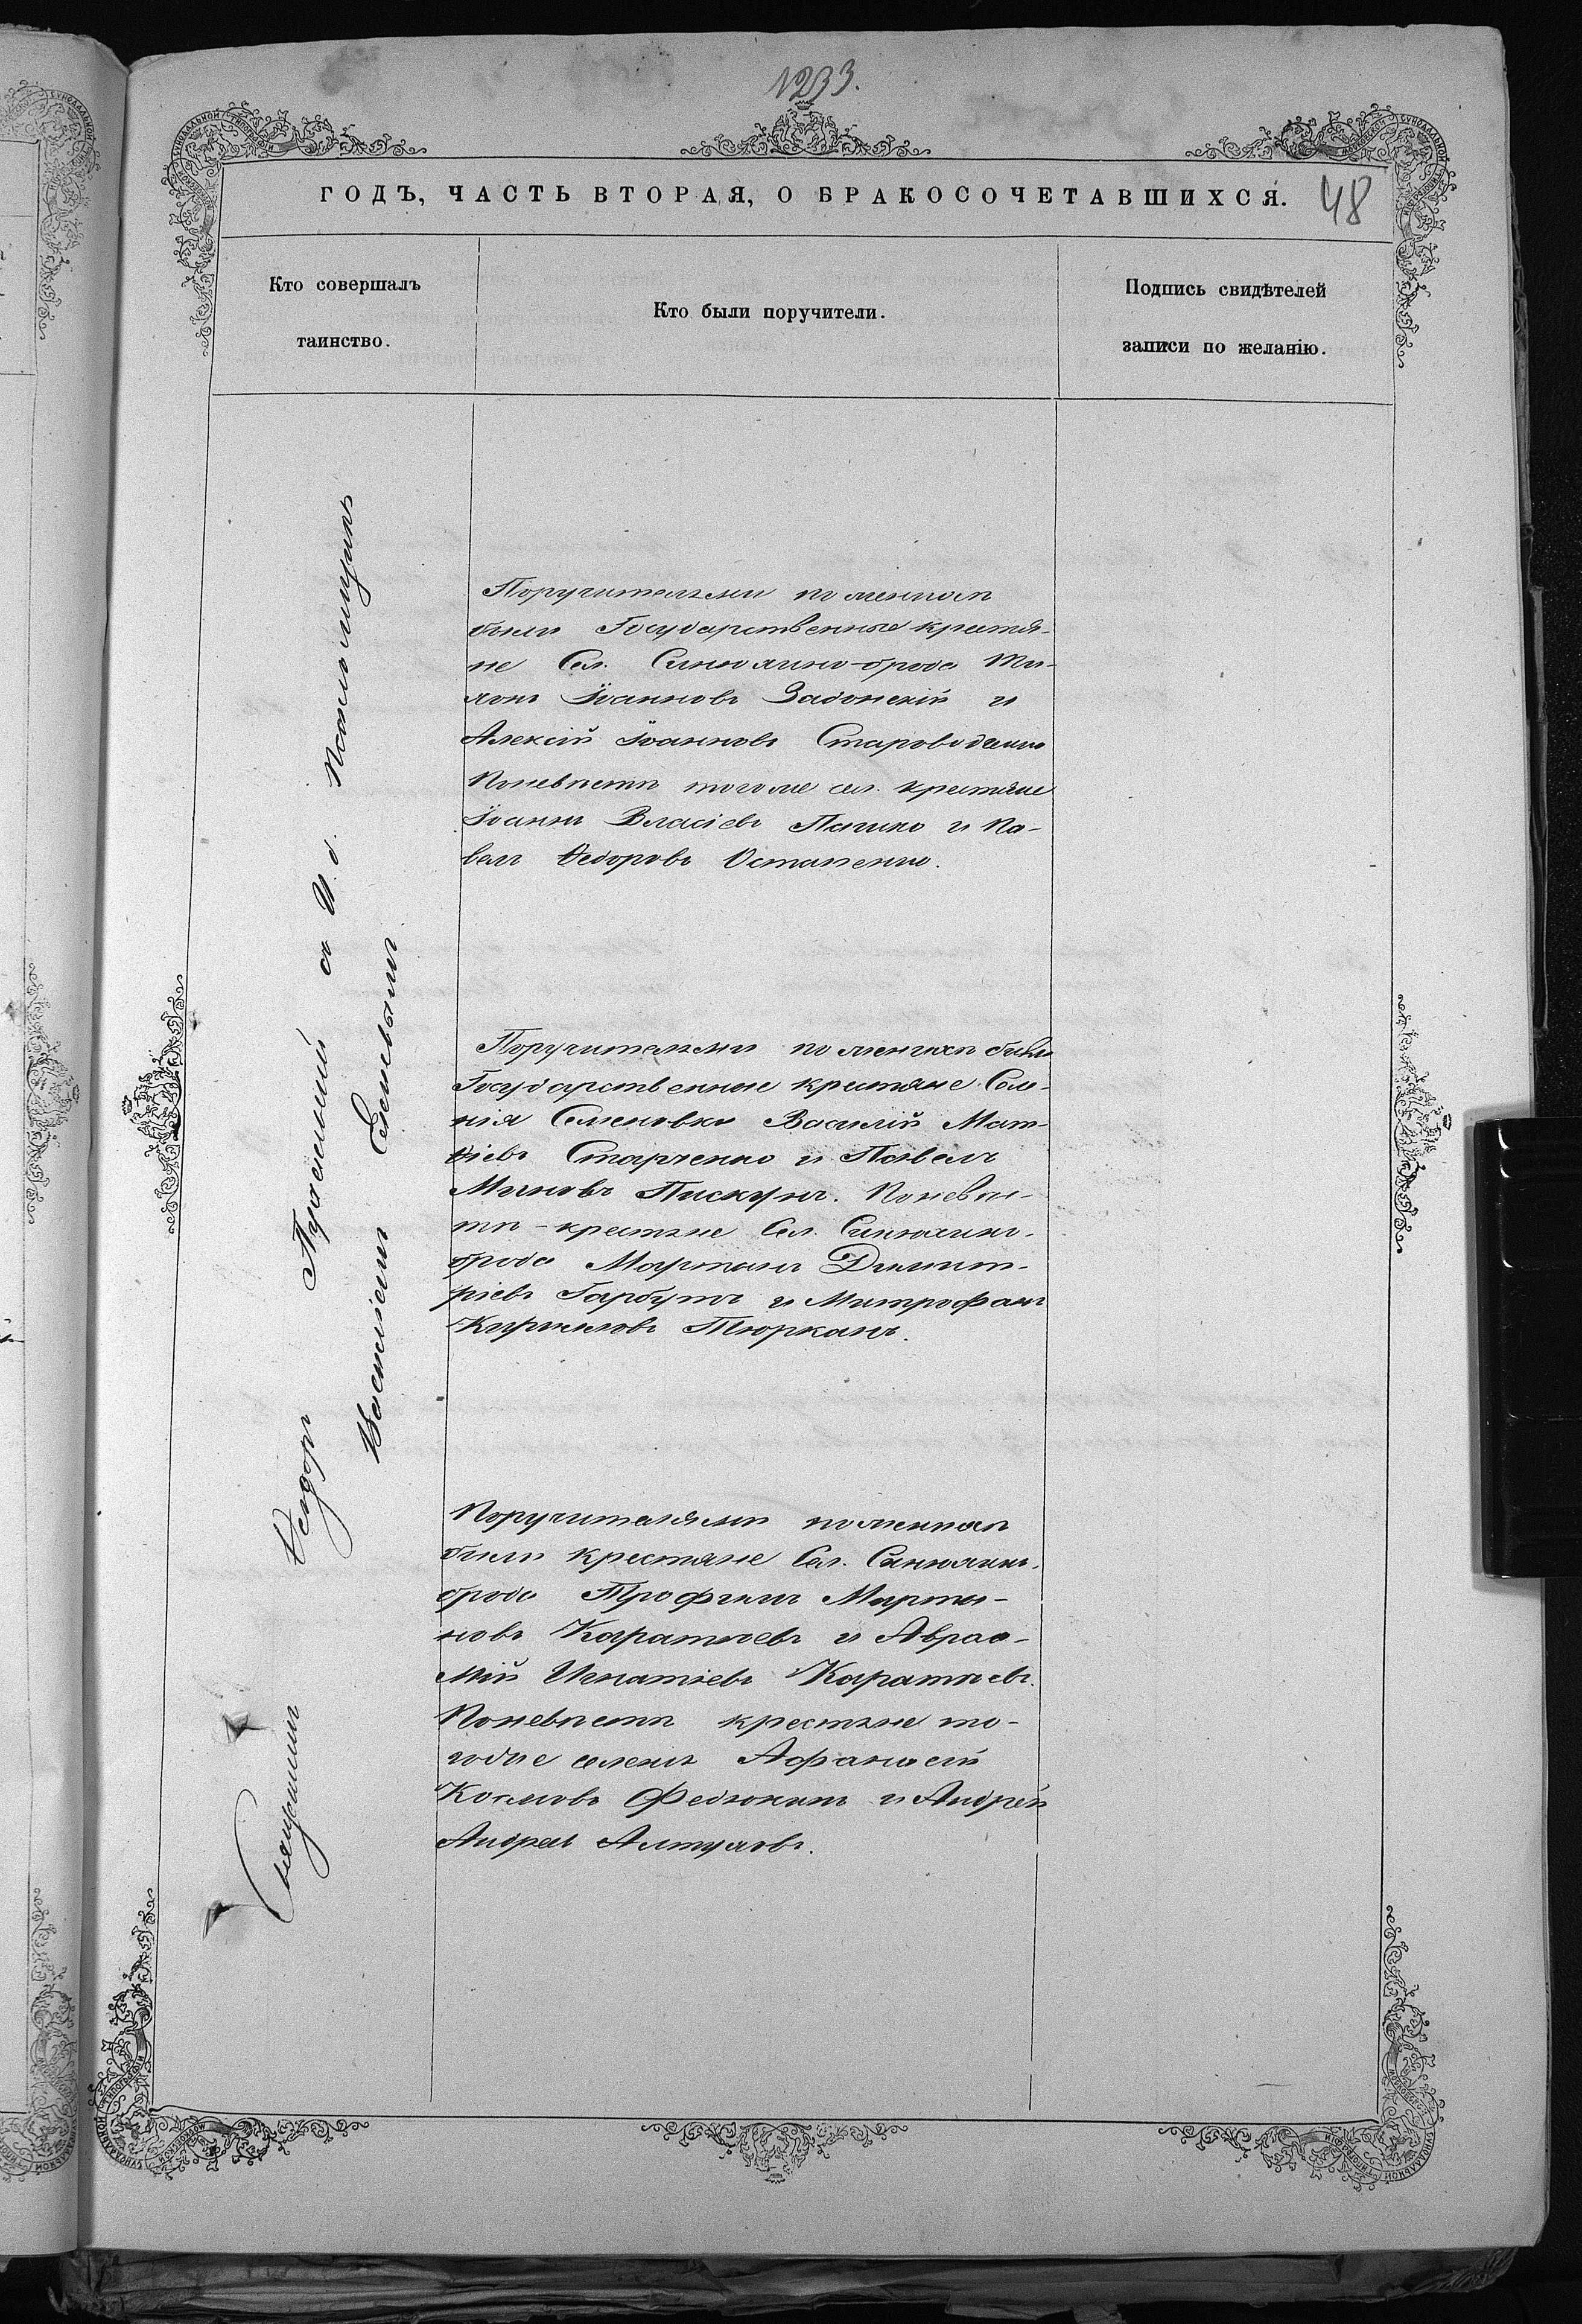 1233.
ГОДЪ, ЧАСТЬ ВТОРАЯ, О БРАКОСОЧЕТАВШИХСЯ.
48
Кто совершалъ
таинство.
Кто были поручители.
Подпись свидѣтелей
записи по желанію.
Священникъ Ѳедоръ Лужении съ И. д. Псаломщика
Василіемъ Семеновымъ
Поручителями по женихѣ
были Государственные крестья-
не Сел. Синюхино-брода
Іоанновъ Задонскій и
Алексій Іоанновъ
Поневѣстѣ тогоже сел. крестьяне
Іоаннъ Власіевъ и Па-
велъ Ѳедоровъ Остапенко.
Поручителями по женихѣ были
Государственные крестьяне Селе-
нія Семеновки Василій Мат-
ѳіевъ Старченко и Павелъ
Пискунъ. Поневѣс-
тѣ - крестьяне Сел. Синюхино-
брода Мартинъ Димит-
ріевъ Гарбузъ и Митрофанъ
Кирилловъ Тюрканъ.
Поручителями по женихѣ
были крестьяне Сел. Синюхино-
брода Трофимъ Марты-
новъ Каратѣевъ и Авраа-
мій Игнатіевъ Каратѣевъ.
Поневѣстѣ крестьяне то-
гоже селенія Афанасій
Космовъ и Андрей
Андреевъ Алтуховъ.